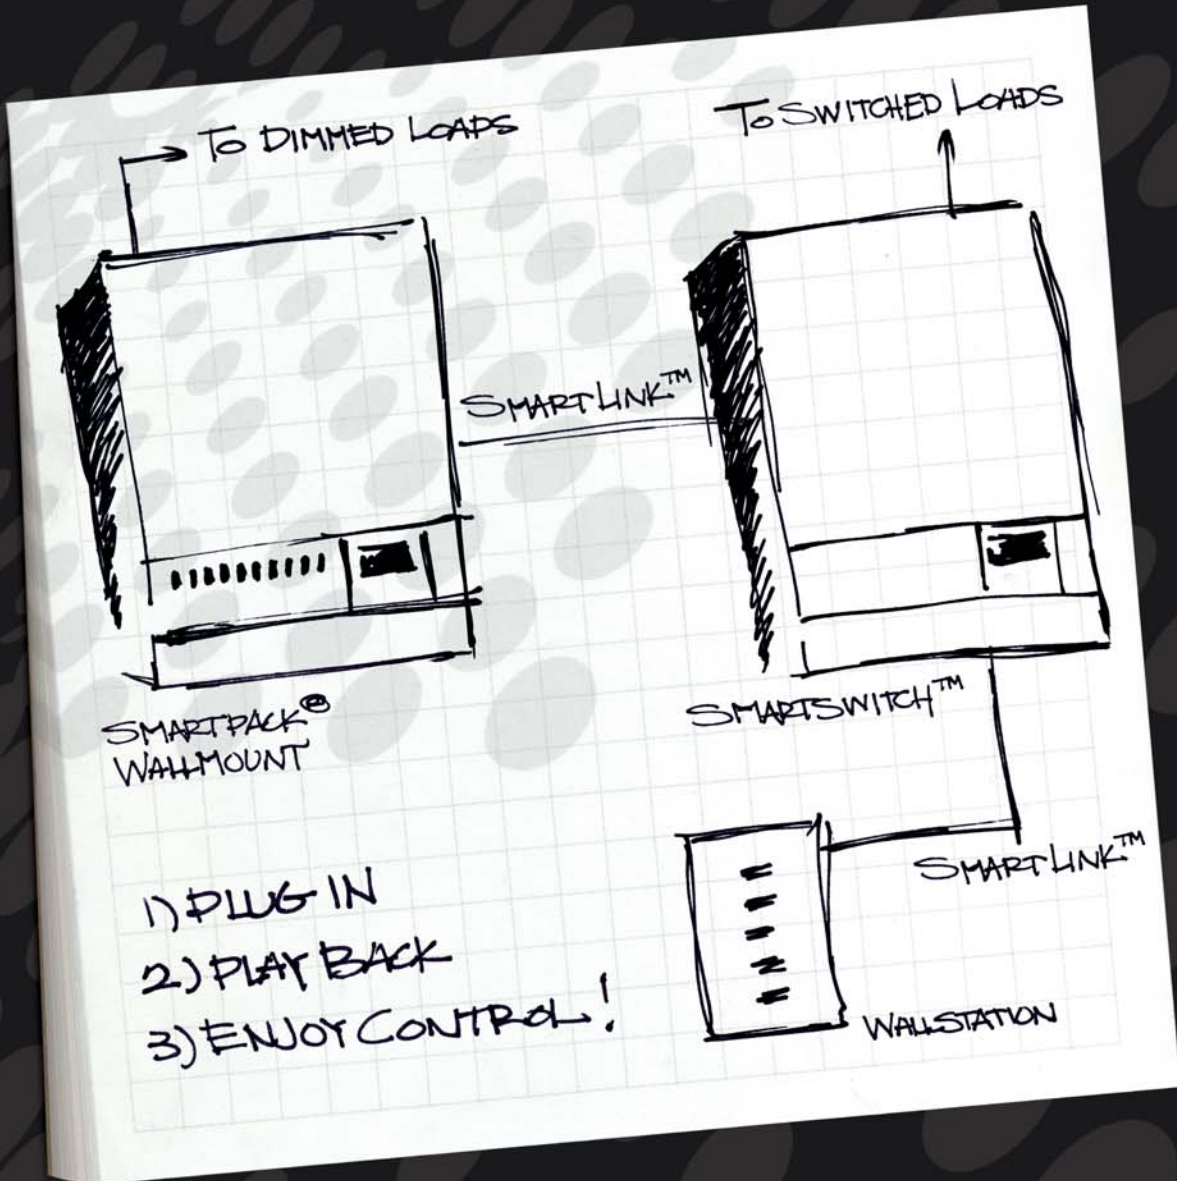 TO DIMMED LOADS
TO SWITCHED LOADS
SMARTLINK™
SMARTPACK®
WALLMOUNT
SMARTSWITCH™
SMARTLINK™
WALLSTATION
1) PLUG IN
2) PLAY BACK
3) ENJOY CONTROL!